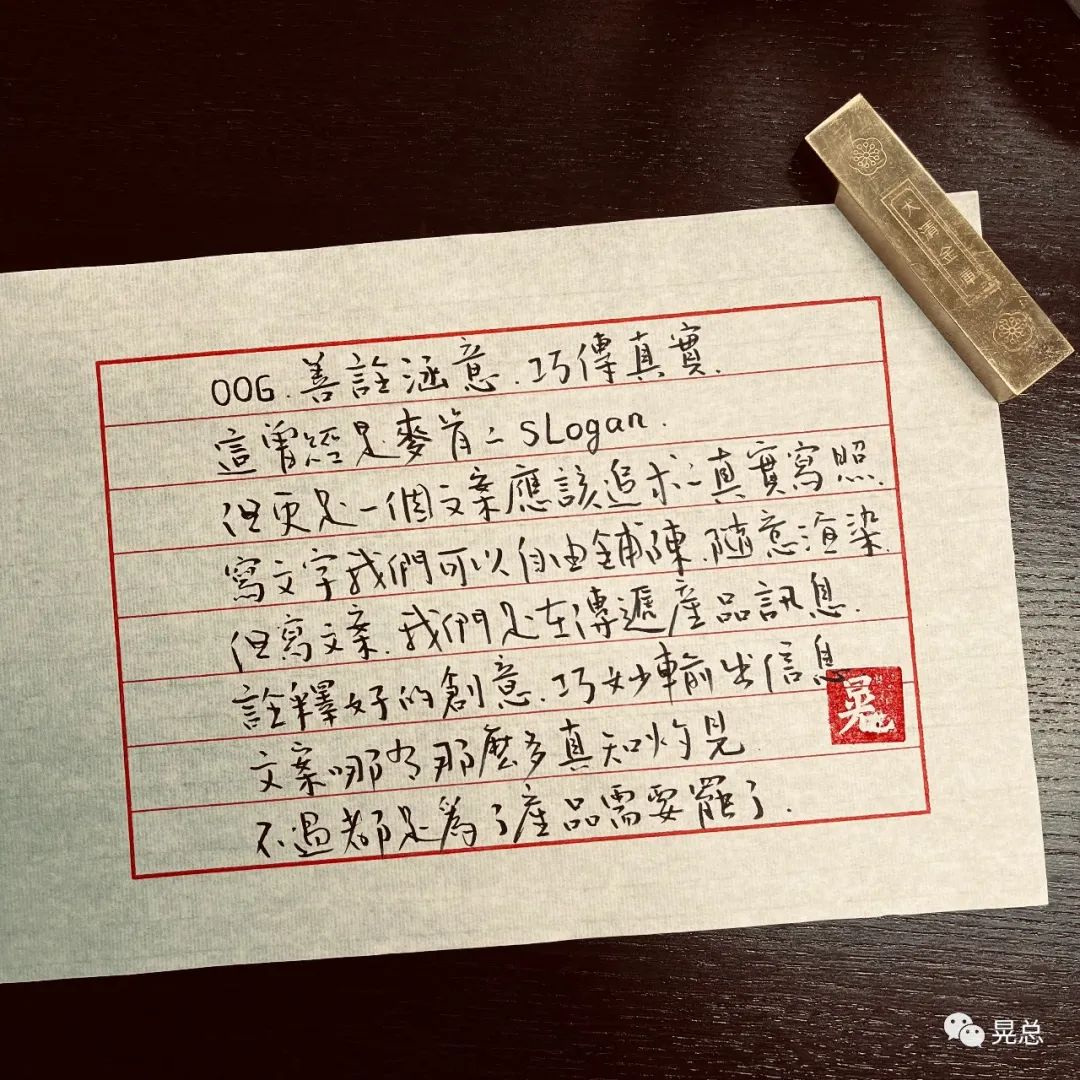 006.善詮涵意.巧傳真實.
這曾經是麥肯之sLogan.
但更是一個文案應該追求之真實寫照.
寫文字我們可以自由鋪陳.隨意渲染.
但寫文案.我們是在傳遞產品訊息.
詮釋好的創意.巧妙輸出信息
文案哪有那麼多真知灼見
不過都是為了產品需要罷了.
晃
晃总